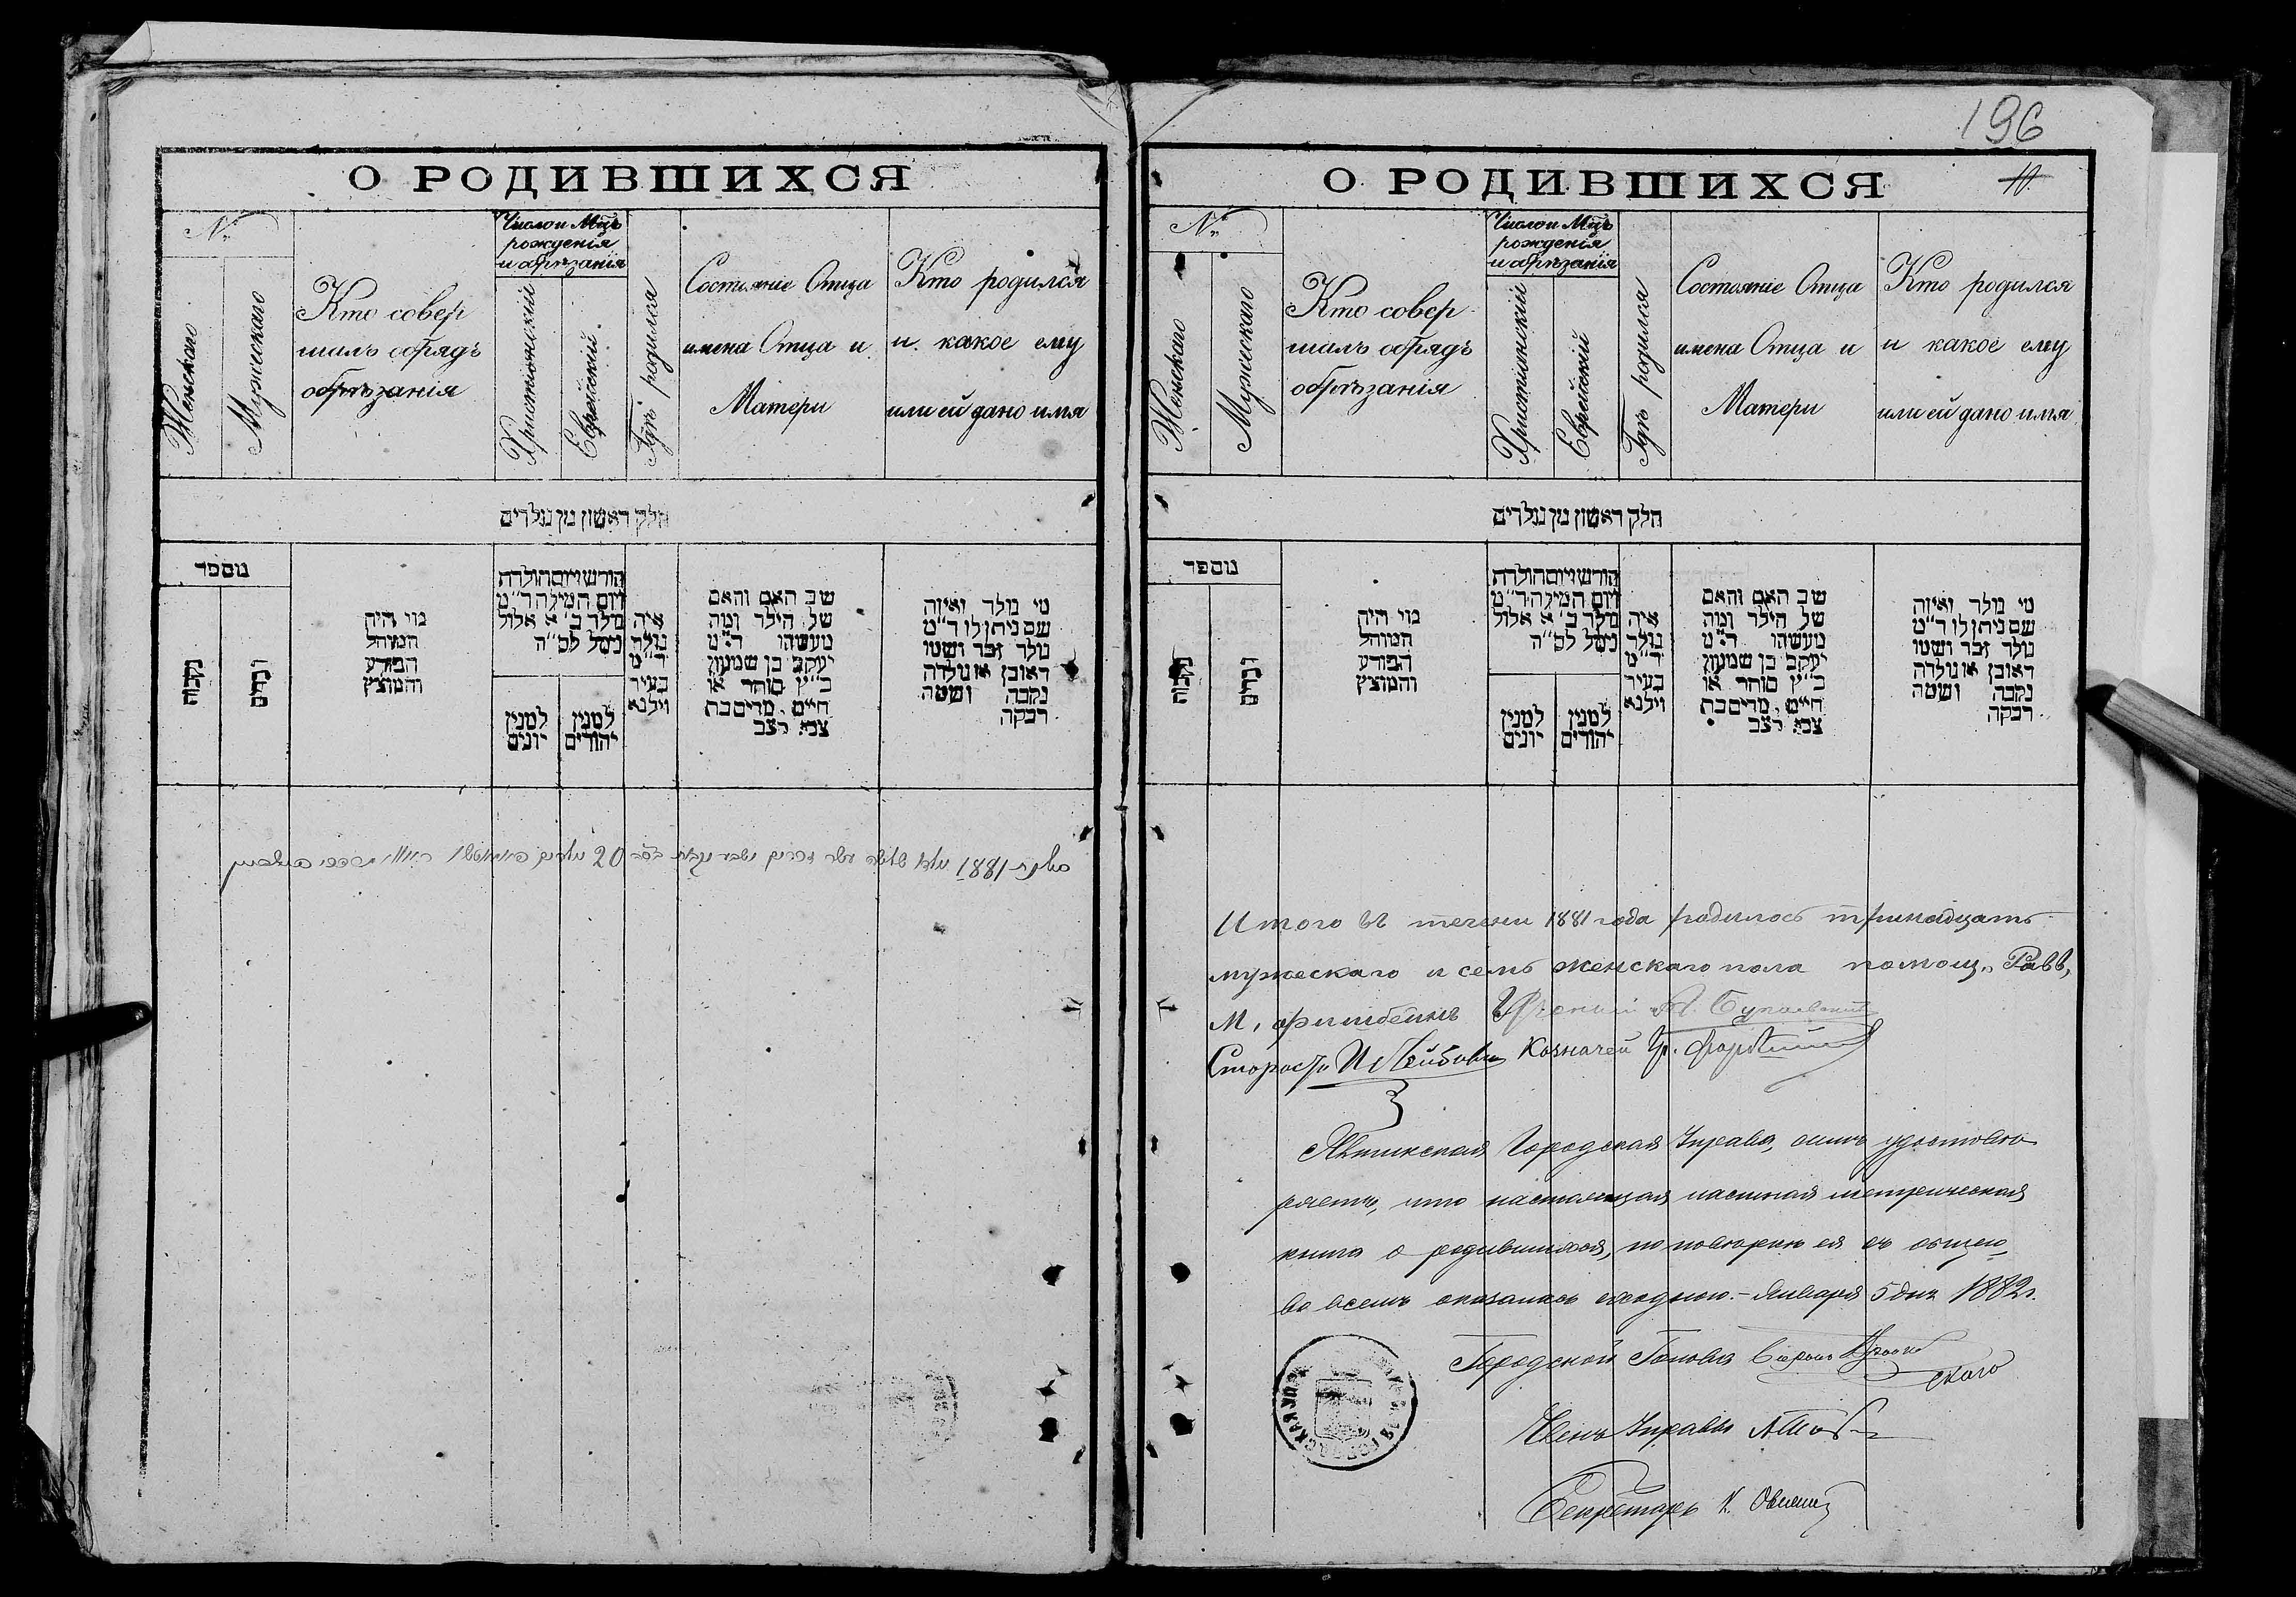 О РОДИВШИХСЯ
№
Женскаго
Мужскаго
Кто совер
шалъ обрядъ
обрѣзанія
Число и Мцъ
рожденія
и обрѣзанія
Христіянскій
Еврейскій
Гдѣ родился
Состояніе Отца
имена Отца и
Матери
Кто родился
и какое ему
или ей дано имя
חלק ראשון מן נולדים
מספר
נקבות
זכרים
מי היה
המוהל
הפורע
והמוצץ
חודש ויום הולדת
ויום המילה ד״מ
נולד ב׳ א אלול
נימל לס״ה
למנין
יונים
למנין
יהודים
איה
נולד
ד״מ
בעיר
וילנא
שם האם והאם
של הילד ומה
מעשהו ד״מ
יעקב בן שמעון
כ״ץ סוחר או
חייט, מרים בת
צבי
מי נולד ואיזה
שם ניתן לו ד״מ
נולד זכר ושמו
ראובן או נולדה
נקבה ושמה
רבקה
1881 שלשה עשר זכרים ושבע נקבות בס״ה 20
196
О РОДИВШИХСЯ
№
Женскаго
Мужскаго
Кто совер
шалъ обрядъ
обрѣзанія
Число и Мцъ
рожденія
и обрѣзанія
Христіянскій
Еврейскій
Гдѣ родился
Состояніе Отца
имена Отца и
Матери
Кто родился
и какое ему
или ей дано имя
חלק ראשון מן נולדים
מספר
נקבות
זכרים
מי היה
המוהל
הפורע
והמוצץ
חודש ויום הולדת
ויום המילה ד״מ
נולד ב׳ א אלול
נימל לס״ה
למנין
יונים
למנין
יהודים
איה
נולד
ד״מ
בעיר
וילנא
שם האם והאם
של הילד ומה
מעשהו ד״מ
יעקב בן שמעון
כ״ץ סוחר או
חייט, מרים בת
צבי
מי נולד ואיזה
שם ניתן לו ד״מ
נולד זכר ושמו
ראובן או נולדה
נקבה ושמה
רבקה
Итого въ течени 1881 года родилось тринадцать
мужескаго и семь женскаго пола помощ. Равв,
М, Фишбейнъ Ученый
Староста И Лейбови Казначей
Городская Управа, симъ удостове
ряетъ, что настоящая частная метрическая
книга о родившихся, по поверки ея съ общею
во всемъ оказалась сходною. - Января 5 дня 1882 г.
Городской Голова
Членъ Управы
Секретарь